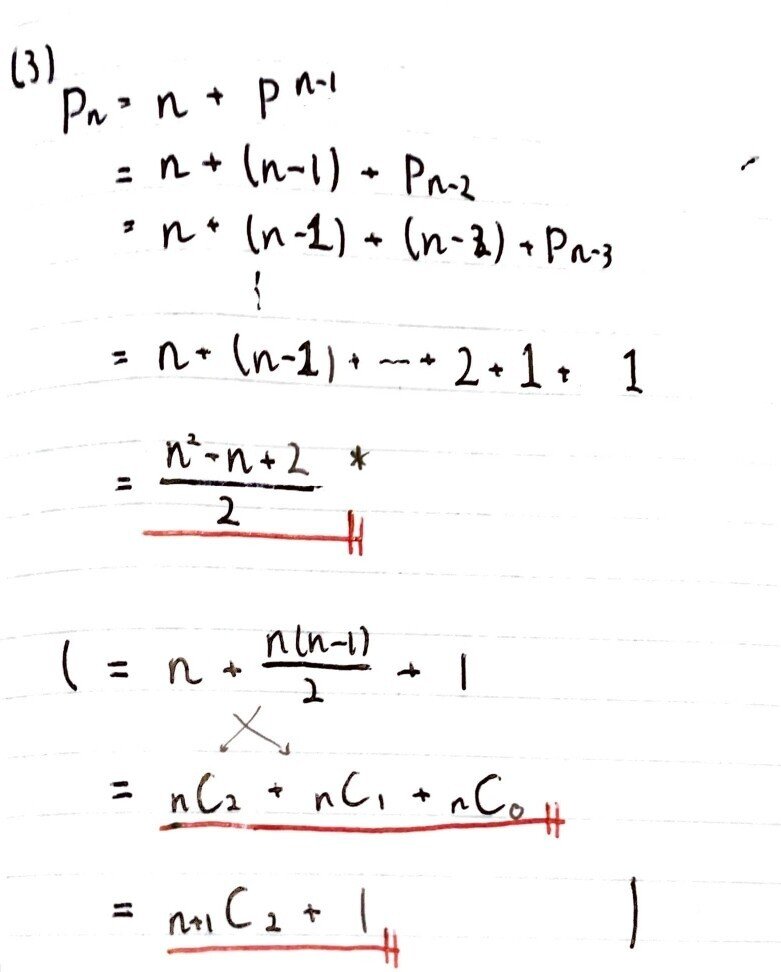 (3)
Pn = n + p n-1
= n + (n-1) + Pn-2
= n + (n-1) + (n-2) + Pn-3
= n + (n-1) + … + 2 + 1 + 1
= n²-n+2 / 2 *
( = n + n(n-1) / 2 + 1
= nC2 + nC1 + nC0
= n+1C2 + 1 )